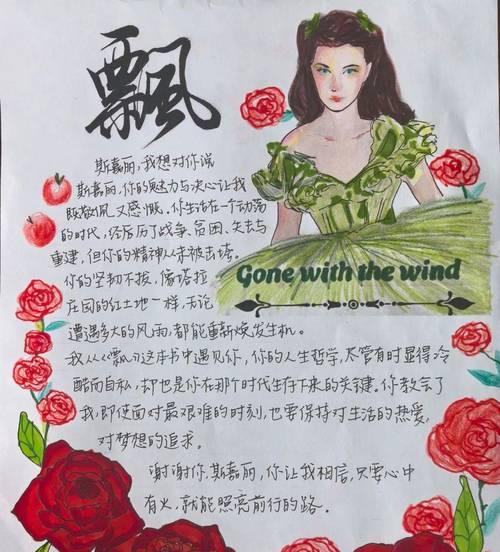 飘
斯嘉丽,我想对你说
斯嘉丽,你的魅力与决心让我
既敬佩又感慨。你生活在一个动荡
的时代,经历历了战争、贫困、失去与
重建,但你的精神从未被击垮。
你的坚韧不拔,像塔拉
庄园的红土地一样,无论
遭遇多大的风雨,都能重新焕发生机。
Gone with the wind
我从《飘》这本书中遇见你,你的人生哲学,尽管有时显得冷
酷而自私,却也是你在那个时代生存下来的关键。你教会了
我,即使面对最艰难的时刻,也要保持对生活的热爱,
对梦想的追求。
谢谢你,斯嘉丽,你让我相信,只要心中
有火,就能照亮前行的路。